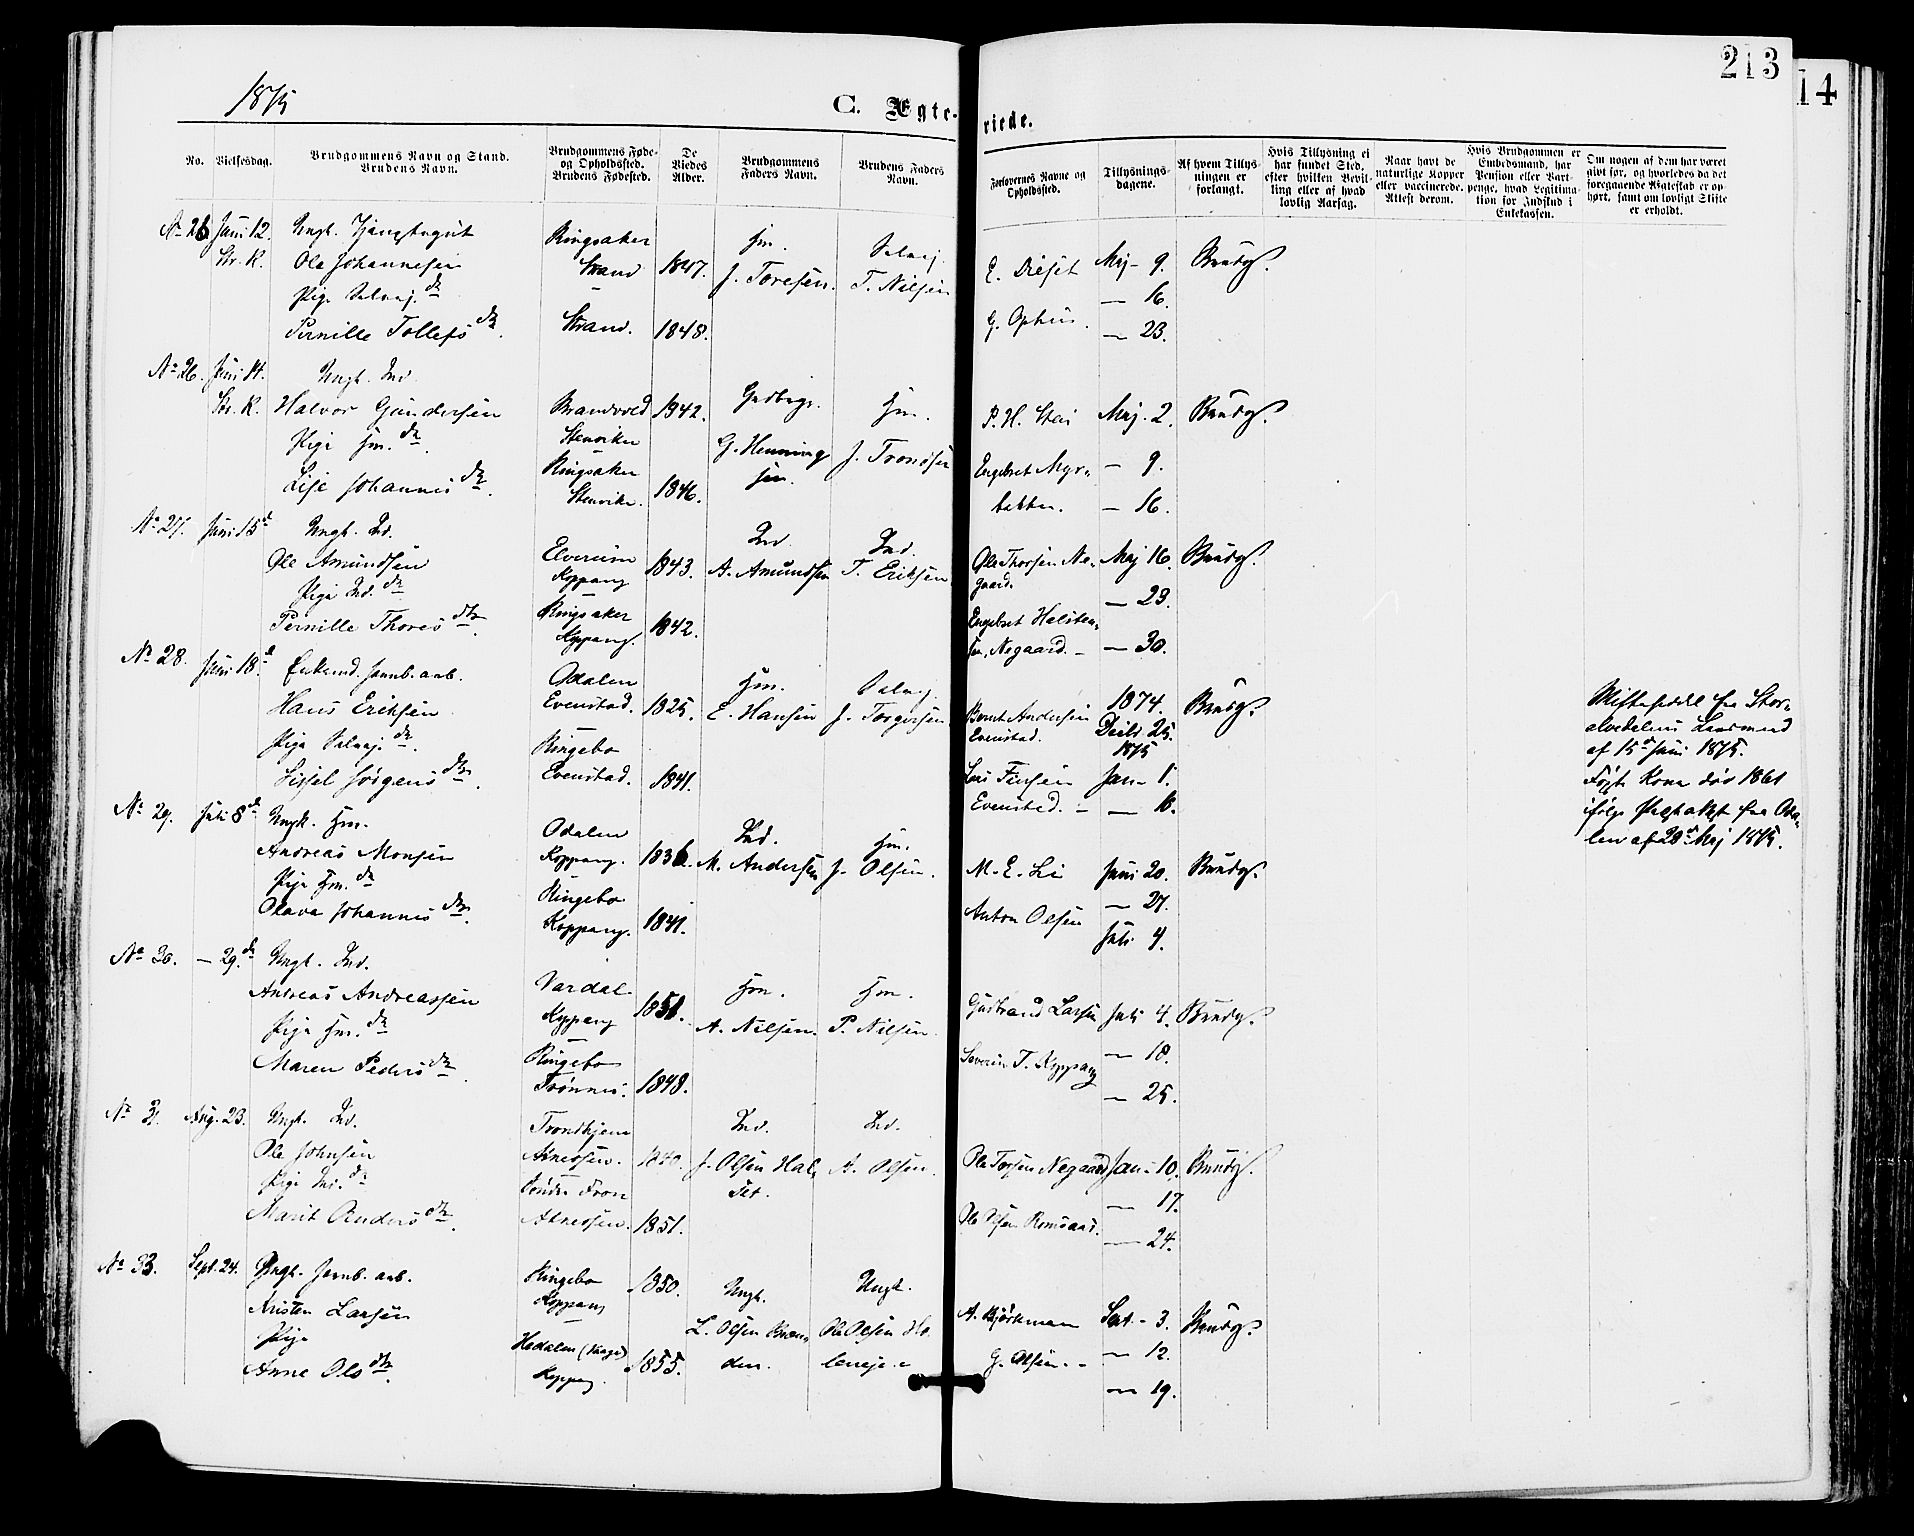 213
14
1875
C. Ægte-
viede.
No.
Vielsesdag.
Brudgommens Navn og Stand.
Brudens Navn.
Brudgommens Føde-
og Opholdssted.
Brudens Fødested.
De
Viedes
Alder.
Brudgommens
Faders Navn.
Brudens Faders
Navn.
Forlovernes Navne og
Opholdssted.
Tillysnings-
dagene.
Af hvem Tillys-
ningen er
forlangt.
Hvis Tillysning ei
har fundet Sted,
efter hvilken Bevil-
ling eller af hvad
lovlig Aarsag.
Naar havt de
naturlige Kopper
eller vaccinerede.
Attest derom.
Hvis Brudgommen er
Embedsmand, har
Pension eller Vart-
penge, hvad Legitima-
tion for Indskud i
Enkekassen.
Om nogen af dem har været
givt før, og hvorledes da det
foregaaende Ægteskab er op-
hørt, samt om lovligt Skifte
er erholdt.
No 26 Juni 12. Ungk.
Str. K. Ole Johannesen
Pige Selvej. dr
Pernille Tollefs dr.
Ringsaker
Strand
Strand.
1847.
1848.
Hm.
J. Toresen.
Selvej.
T. Nilsen
E. Dieset
G. Ophus.
Maj - 9.
— 16.
— 23.
Brudg.
No 26. Juni 14. Ungk. Ind.
Str. K. Halvor Gundersen
Pige Hm. dr.
Lise Johannes dr.
Brandvold
Stenviken
Ringsaker
Stenviken.
1842.
1846.
Gudbrgr.
G. Henning
sen.
Hm.
J. Tronsen
P. H. Stai
Engebret Myr-
bakken.
Maj. 2.
— 9.
— 16.
Brudg.
No 27. Juni 15 d Ungk. Ind.
Ole Amundsen
Pige Ind. dr
Pernille Thores dtr.
Elverum
Koppang
Ringsaker
Koppang.
1843.
1842.
Ind.
A. Amundsen
Ind.
T. Eriksen
Ole Thorsen Ne-
gaard.
Engebret Halsten-
sen, Negaard. -
Maj 16.
— 23.
— 30.
Brudg.
No 28. Juni 18. d Enkemd. Jernb. arb.
Hans Eriksen
Pige Selvej. dr.
Sissel Jørgens dtr.
Odalen
Evenstad.
Ringebo
Evenstad.
1825.
1841.
Hm.
E. Hansen
Selvej.
J. Torgersen
Bernt Andersen
Evenstad.
Lars Finsen
Evenstad. -
1874.
Decbr. 25.
1875
Jan. 1.
— 6.
Brudg.
Skifteseddel fra Stor-
elvedalens Lensmand
af 15 d Juni 1875.
Første Kone død 1861
ifølge Præsteattest fra Oda-
len af 20 d Maj 1875.
No 29. Juli 8 d Ungk. Hm.
Andreas Monsen
Pige Hm. dr
Olava Johannes dtr.
Odalen
Koppang.
Ringebo
Koppang.
1836.
1841.
Ind.
M. Andersen
Hm.
J. Olsen.
M. E. Li
Anton Olsen
Juni 20.
— 27.
Juli 4.
Brudg.
No 30. — 29. de Ungk. Ind.
Andreas Andreassen
Pige Hm. dr
Maren Peders dtr.
Vardal
Koppang
Ringebo
Trønnes.
1851.
1848.
Hm.
A. Nilsen.
Hm.
P. Nilsen.
Gudbrand Larsen
Severin T. Koppang
Juli 4.
— 18.
— 25.
Brudg.
No 31. Aug. 23. Ungk. Ind.
Ole Johnsen
Pige Ind. dr
Marit Anders dtr.
Trondhjem
Atneosen.
Søndre Fron
Atneosen.
1840.
1851.
Ind.
J. Olsen Hal-
set.
Ind.
A. Olsen.
Ole Torsen Negaard
Ole Olsen Romsaas.
Jan. 10.
— 17.
— 24.
Brudg.
No 33. Sept. 24. Ungk. Jernb. arb.
Kristen Larsen
Pige
Anne Ols dtr.
Ringebo
Koppang
Hedalen (Vaage)
Koppang.
1850.
1855.
Ungk.
L. Olsen Bræn-
den.
Ungk.
Ole Olsen
A. Björkman
G. Olsen. -
Sept. - 3.
— 12.
— 19.
Brudg.